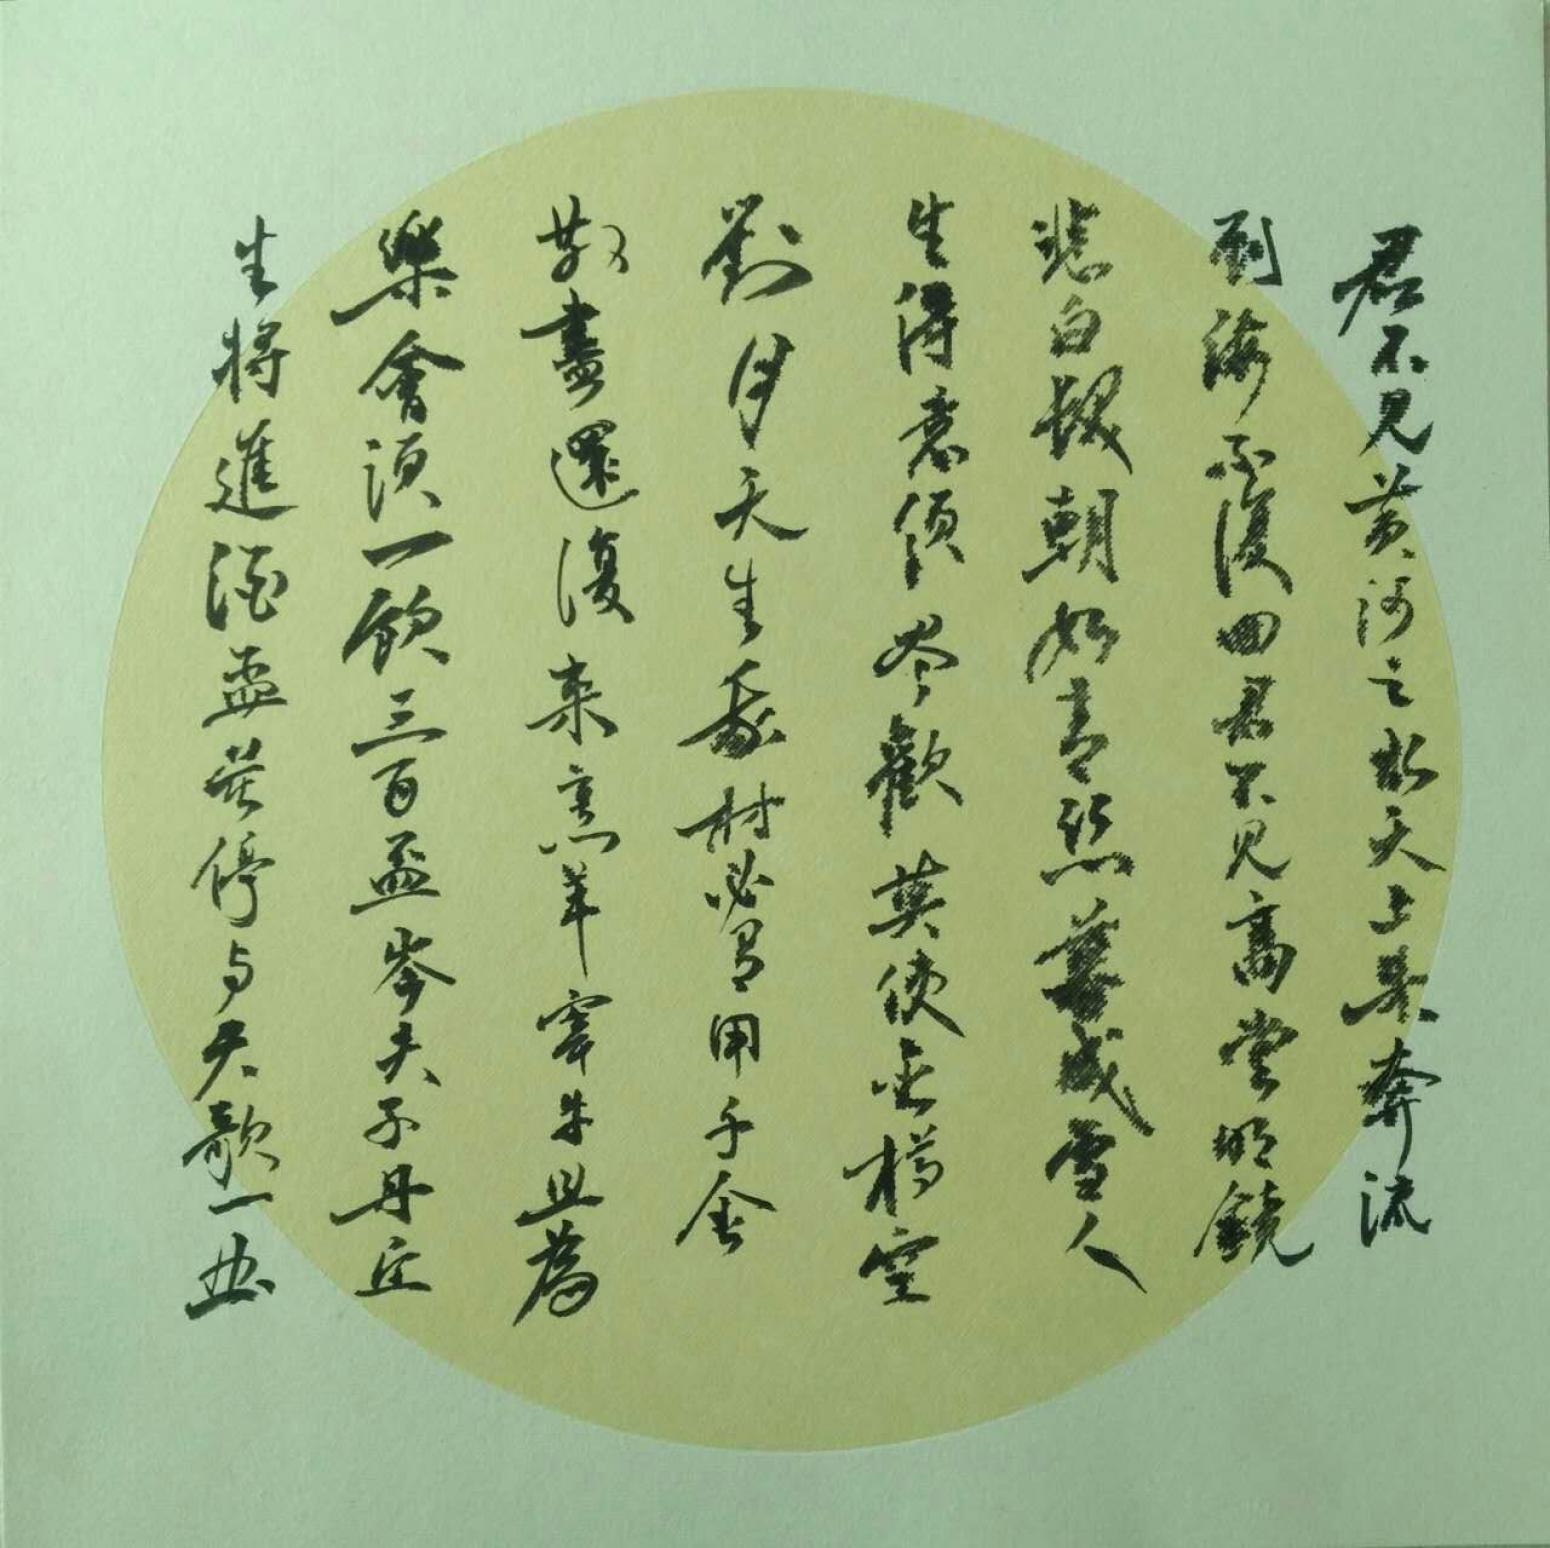 君不见黄河之水天上来奔流
到海不復回君不见高堂明鏡
悲白髮朝如青丝暮成雪人
生得意须尽歡莫使金樽空
對月天生我材必有用千金
散盡還復来烹羊宰牛且為
樂會须一飲三百盃岑夫子丹丘
生將進酒盃莫停与君歌一曲